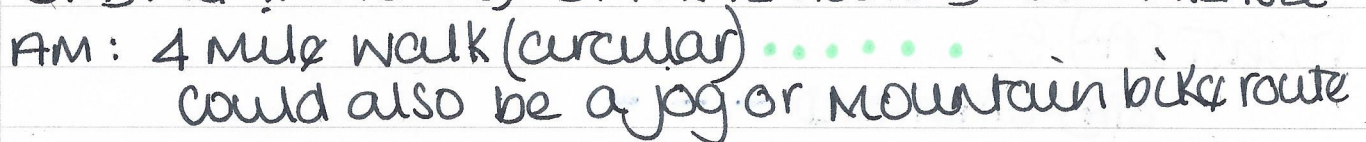 AM: 4 mile walk (circular) ......
could also be a jog or mountain bike route